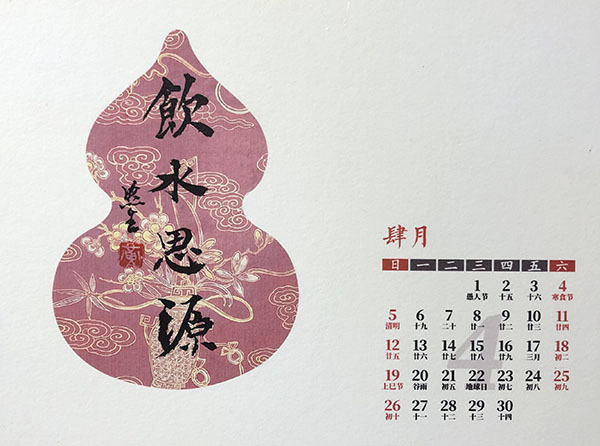 飲水思源
肆月
日 一 二 三 四 五 六
1 2 3 4
愚人节 十五 十六 寒食节
5 6 7 8 9 10 11
清明 十九 二十 廿一 廿二 廿三 廿四
12 13 14 15 16 17 18
廿五 廿六 廿七 廿八 廿九 三月 初二
19 20 21 22 23 24 25
上巳节 谷雨 初五 地球日 初七 初八 初九
26 27 28 29 30
初十 十一 十二 十三 十四
4